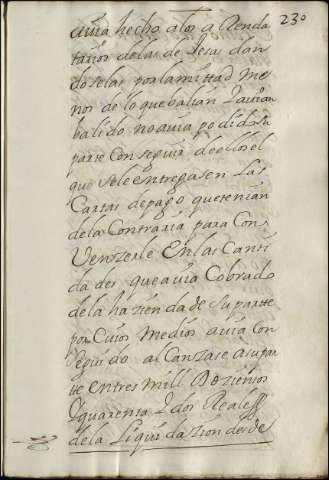 230
auia hecho a los arrenda
tarios de las de Jesas dan
doselas por la mittad me
nos de lo que balian y auian
balido no auia podido su
parte Conseguir de ellos el
que se le entregasen Las
Cartas de pago que tenian
de la Contraria para Con
Venszerle En las Canti
dades que auia Cobrado
de la hazienda de su partte
por Cuios medios auia Con
seguido alCanzase a su par
tte en tres mill Dozientos
y quarenta y dos Reales
de la Liquidazion desde